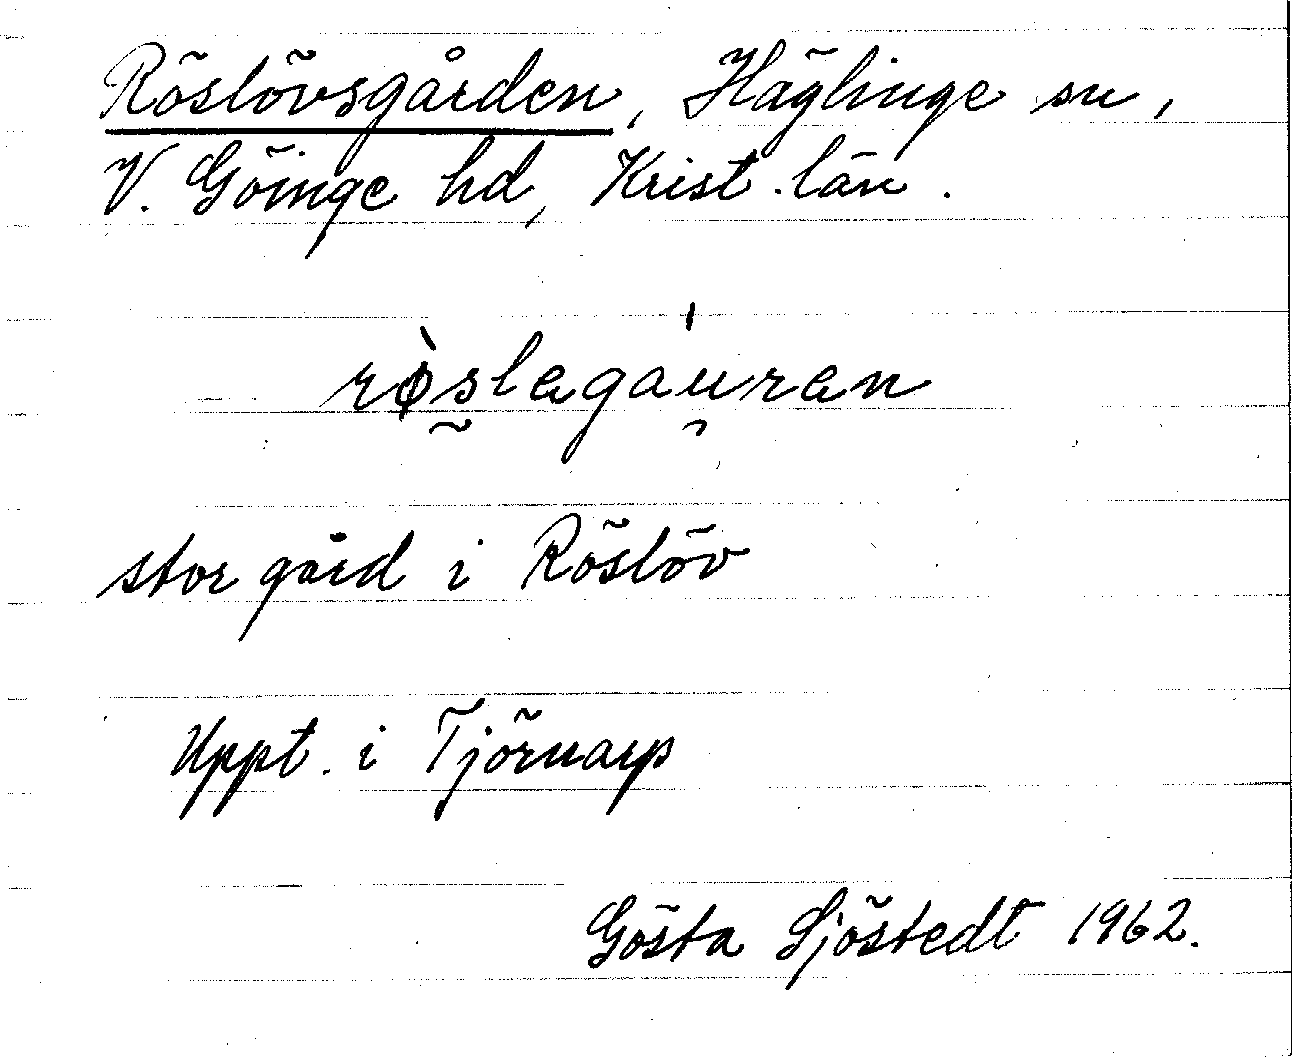 Röslövsgården, Häglinge sn,
V. Göinge hd, Krist. län.
røslagau̯ran
stor gård i Röslöv
Uppt. i Tjörnarp
Gösta Sjöstedt 1962.